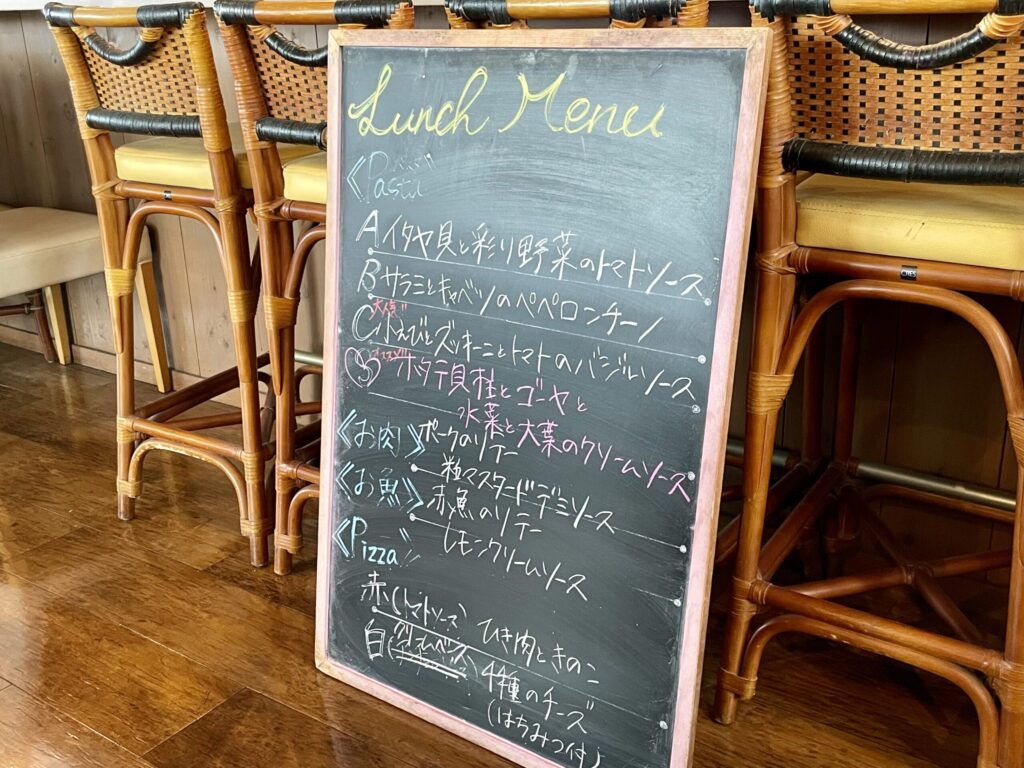 Lunch Menu
《Pasta》
A イタヤ貝と彩り野菜のトマトソース
B サラミとキャベツのペペロンチーノ
大人気
C 小えびとズッキーニとトマトのバジルソース
オススメ!!
ホタテ貝柱とゴーヤと
水菜と大葉のクリームソース
《お肉》ポークのソテー
粒マスタードデミソース
《お魚》赤魚のソテー
レモンクリームソース
《Pizza》
赤(トマトソース) ひき肉ときのこ
白 4種のチーズ
(はちみつ付)